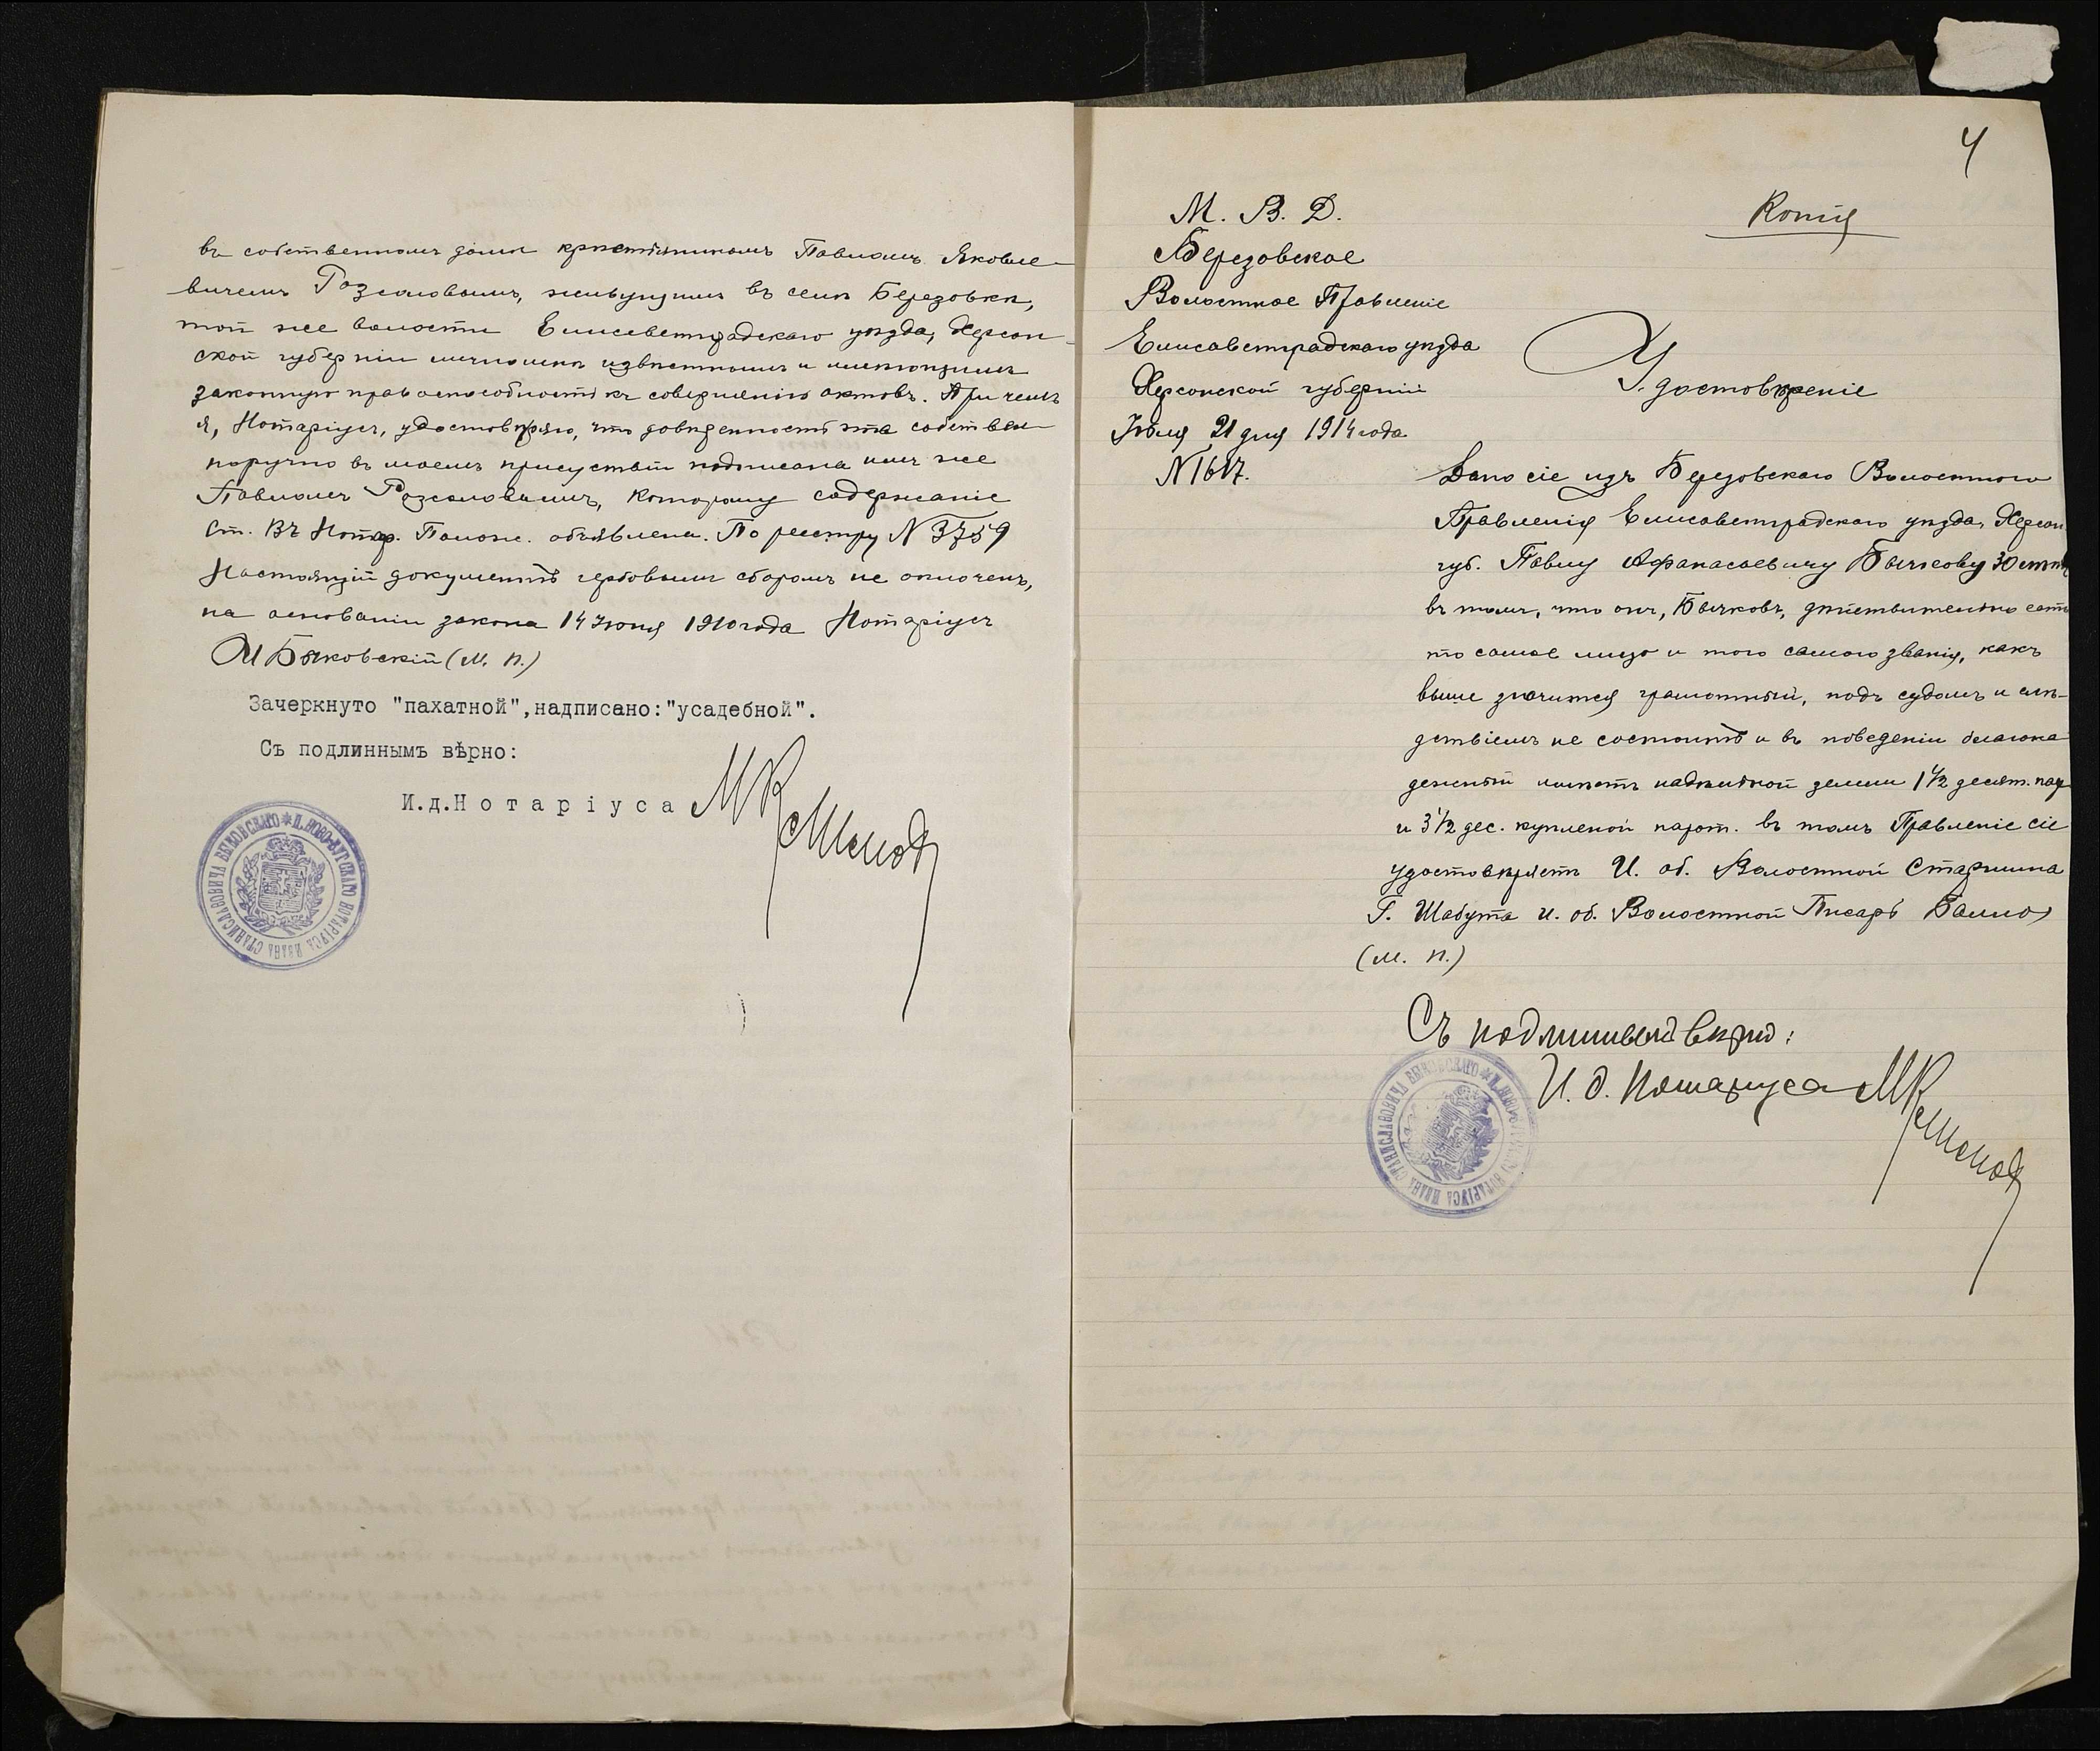 въ собственномъ домѣ крестьяниномъ Павломъ Яковле-
вичемъ Розсоловымъ, живущимъ въ селѣ Березовкѣ,
той же волости Елисаветградскаго уѣзда, Херсон-
ской губерніи лично мнѣ извѣстнымъ и имѣющимъ
законную правоспособность къ совершенію актовъ. При чемъ
я, Нотаріусъ, удостовѣряю, что довѣренность эта собствен-
норучно въ моемъ присутствіи подписана имъ же
Павломъ Розсоловымъ, которому содержаніе
ст. Нотар. Полож. объявлена. По реестру N 3759
Настоящій документъ гербовымъ сборомъ не оплоченъ,
на основаніи закона 14 Іюня 1910 года Нотаріусъ
И Быковскій (М. П.)
Зачеркнуто "пахатной", надписано: "усадебной".
Съ подлиннымъ вѣрно:
И.д.Нотаріуса
* П. НОВО-БУГСКАГО НОТАРІУСА ИВАНА СТАНИСЛАВОВИЧА БЫКОВСКАГО
4
М. В. Д.
Березовское
Волостное Правленіе
Елисаветградскаго уѣзда
Херсонской губерніи
Іюля 21 дня 1914 года
N 1617.
Копія
Удостовѣреніе
Дано сіе изъ Березовскаго Волостного
Правленія Елисаветградскаго уѣзда, Херсон
губ. Павлу Афанасьевичу Бычкову 30
въ томъ, что онъ, Бычковъ, дѣйствительно есть
то самое лицо и того самого званія, какъ
выше значится грамотный, подъ судомъ и слѣ-
дствіемъ не состоитъ и въ поведеніи благона
дежный имѣетъ надѣльной земли 1 1/2 десят.
и 3 1/2 дес. купленой въ томъ Правленіе сіе
удостовѣряетъ И. об. Волостной Старшина
Г. Шабута И. об. Волостной Писарь
(М. П.)
Съ подлиннымъ вѣрно:
И. д. Нотаріуса
* П. НОВО-БУГСКАГО НОТАРІУСА ИВАНА СТАНИСЛАВОВИЧА БЫКОВСКАГО